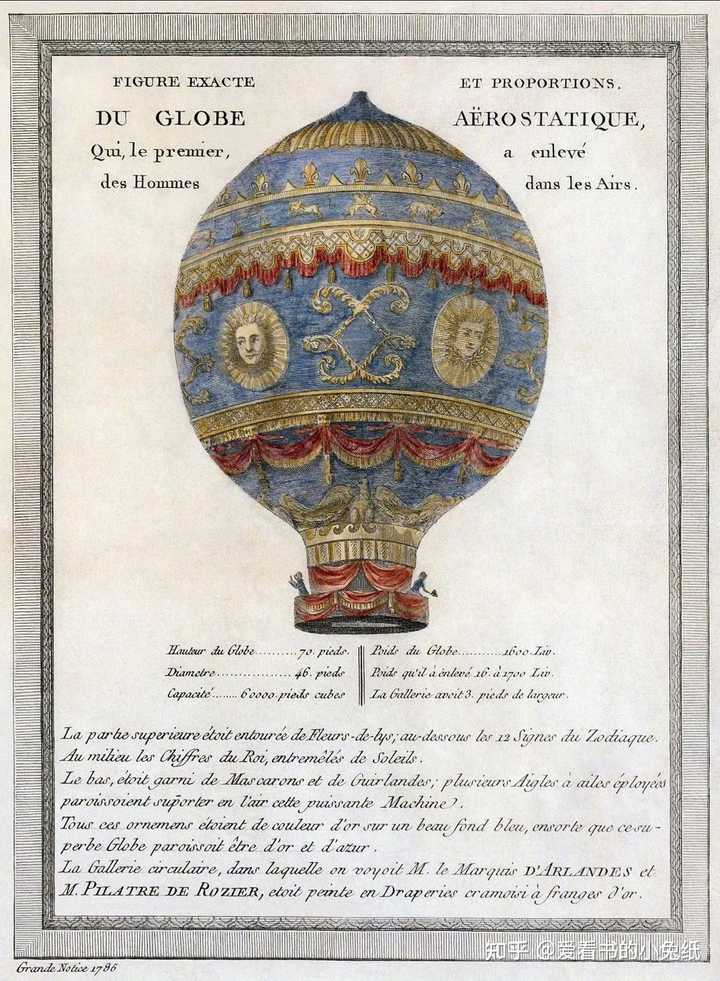 FIGURE EXACTE ET PROPORTIONS.
DU GLOBE AËROSTATIQUE,
Qui, le premier, a enlevé
des Hommes dans les Airs.
Hauteur du Globe..........70. pieds. Poids du Globe............1600. Liv.
Diametre.................. 46. pieds Poids qu'il à enlevé 16. à 1700 Liv.
Capacité........ 60000. pieds cubes La Gallerie avoit 3. pieds de largeur.
La partie superieure étoit entourée de Fleurs-de-lys, au-dessous les 12 Signes du Zodiaque.
Au milieu les Chiffres du Roi, entremêlés de Soleils.
Le bas, étoit garni de Mascarons et de Guirlandes; plusieurs Aigles à ailes éployées
paroissoient suporter en l'air cette puissante Machine.
Tous ces ornemens étoient de couleur d'or sur un beau fond bleu, ensorte que ce su-
perbe Globe paroissoit être d'or et d'azur.
La Gallerie circulaire, dans laquelle on voyoit M. le Marquis D'ARLANDES et
M. PILATRE DE ROZIER, etoit peinte en Draperies cramoisi à franges d'or.
Grande Notice 1786
知乎 @爱看书的小兔纸